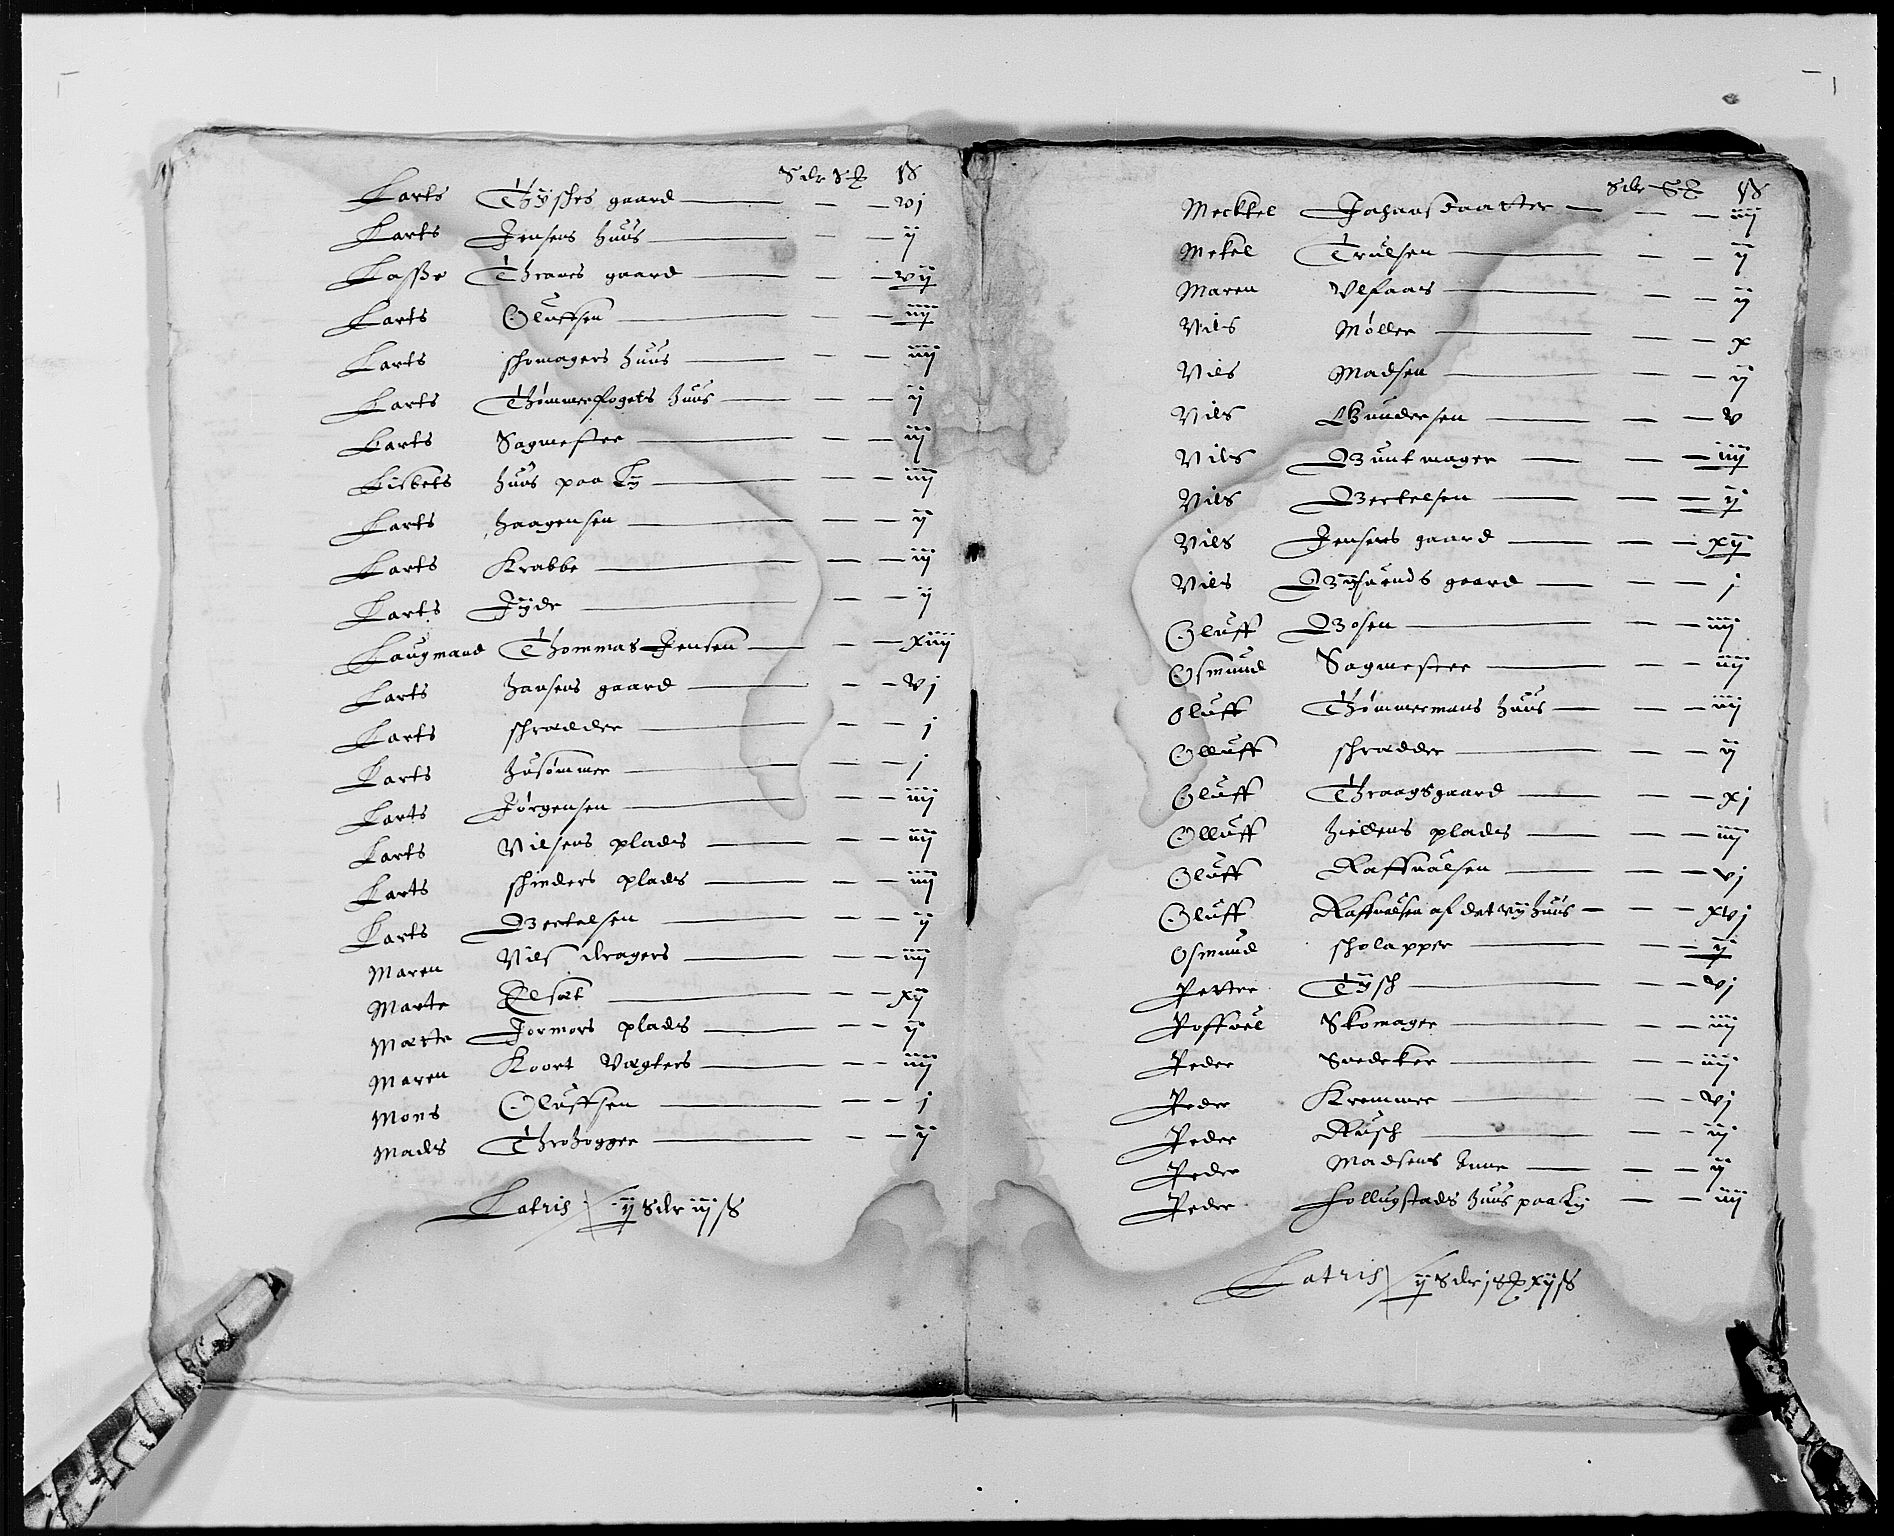 Sdlr S℔ ß
Larts Thÿskes gaard — — — vj
Larts Jensens huus — — — ij
Lasße Thranes gaard — — — vij
Larts Oluffsen — — — iiij
Larts skomagers huus — — — iiij
Larts Thømmerfogets huus — — — ij
Larts Sagmester — — — iij
Lisbets huus paa Lÿ — — — iiij
Larts Haagensen — — — ij
Larts Krabbe — — — iij
Larts Jÿde — — — ij
Laugmand Thommas Jensen — — — xiiij
Larts Hansens gaard — — — vj
Larts skrædder — — — j
Larts Husømmer — — — j
Larts Jørgensen — — — iiij
Larts Nilsens plads — — — iiij
Larts skinders plads — — — iiij
Larts Bertelsen — — — ij
Maren Nils dragers — — — iiij
Marte — — — xij
Mætte Jormors plads — — — ij
Maren Koort Vægters — — — iiij
Mons Oluffsen — — — j
Mads — — — ij
Latris ij Sdlr iij ß
Sdlr S℔ ß
Mekkel Johansdaatter — — — iiij
Mekel Trulsen — — — ij
Maren Ulfaas — — — ij
Nils Møller — — — x
Nils Madsen — — — ij
Nils Gundersen — — — v
Nils Buntmager — — — iiij
Nils Bertelsen — — — ij
Nils Jensens gaard — — — xij
Nils gaard — — — j
Oluff Bosen — — — iiij
Osmund Sagmester — — — iiij
Oluff Thømmermans huus — — — iiij
Olluff skrædder — — — ij
Oluff Thraagsgaard — — — xj
Olluff Hiellens plads — — — iiij
Oluff Raffuelsen — — — vj
Oluff Raffuelsen af det nÿ huus — — — xvj
Osmund skolapper — — — ij
Petter Tÿsk — — — vj
Poffuel Skomager — — — iiij
Peder Snedeker — — — iiij
Peder Kremmer — — — vj
Peder Rusk — — — iij
Peder Madsens Anne — — — ij
Peder Follugstads huus paa Lÿ — — — iiij
Latris ij Sdlr j S℔ xij ß